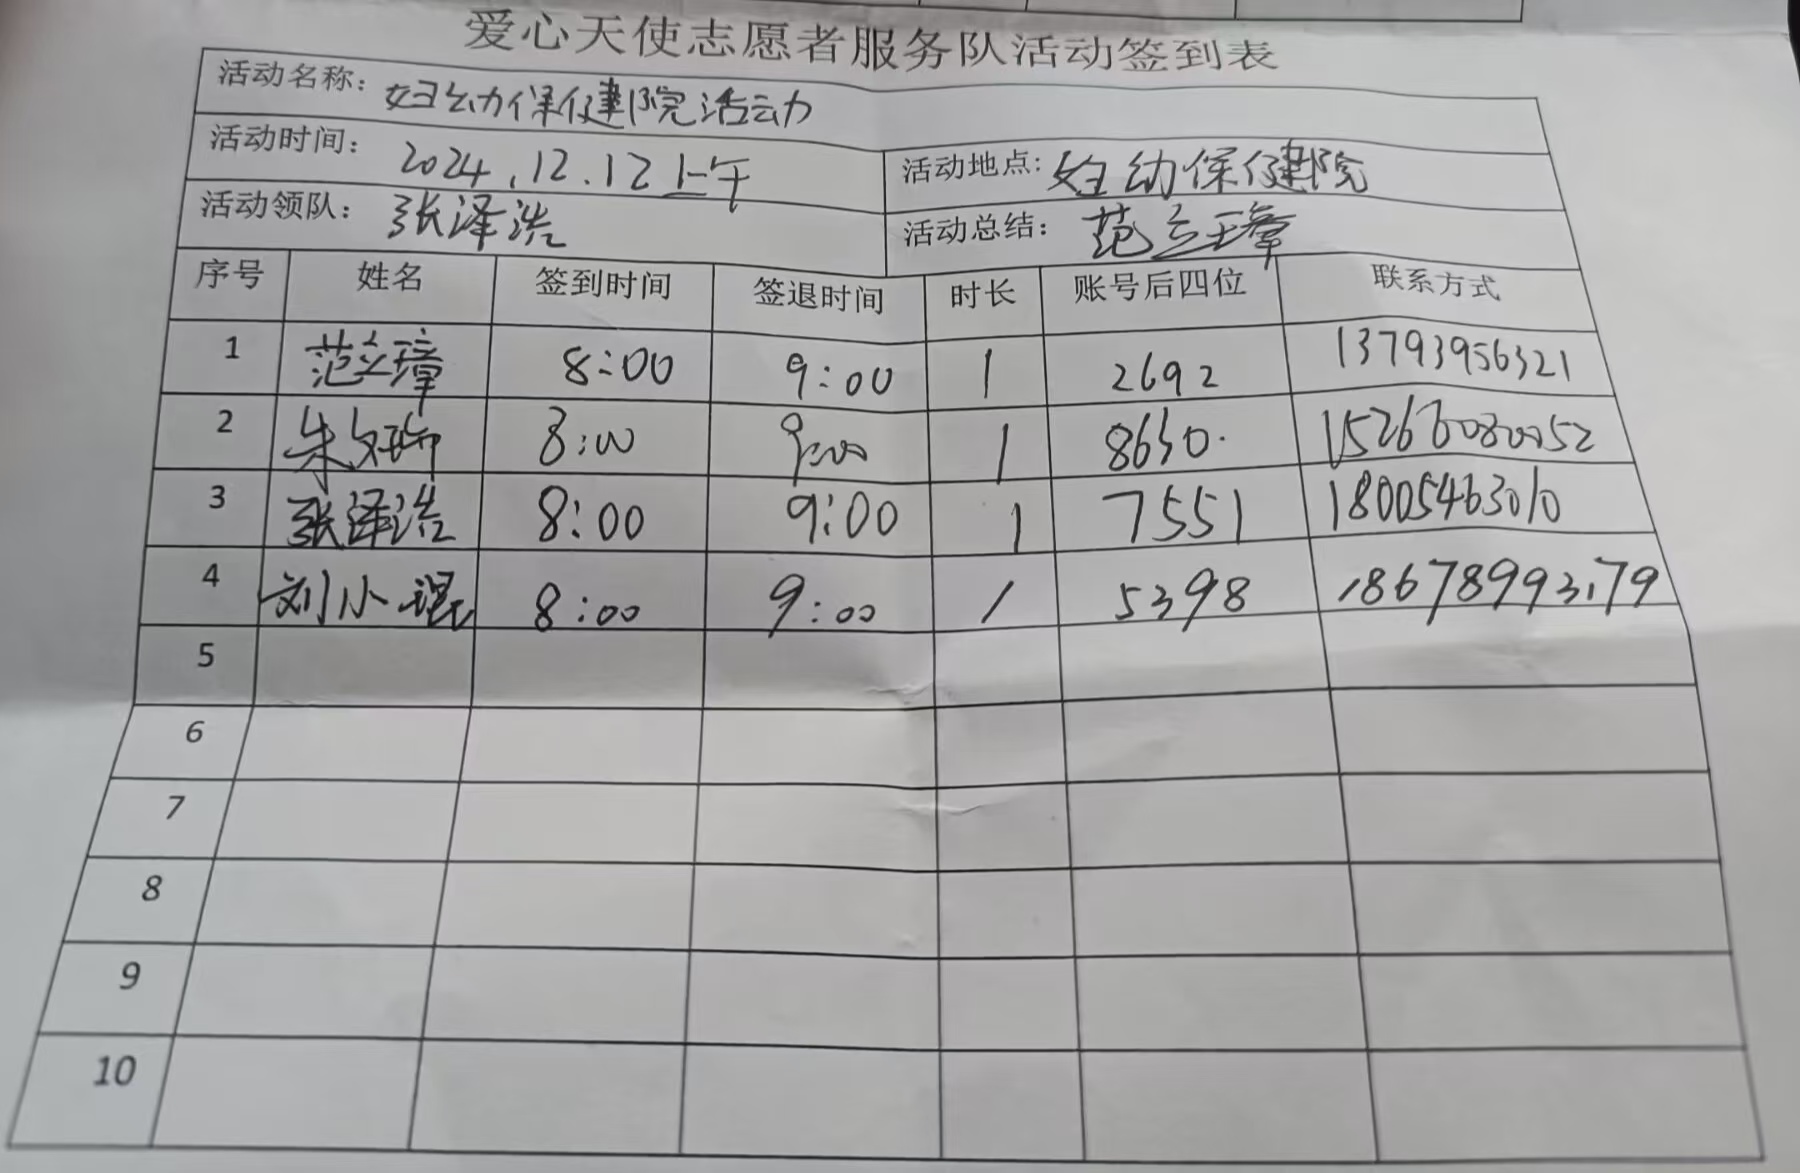 爱心天使志愿者服务队活动签到表
活动名称：妇幼保健院活动
活动时间：2024.12.12上午 活动地点：妇幼保健院
活动领队：张泽浩 活动总结：范立璋
序号 姓名 签到时间 签退时间 时长 账号后四位 联系方式
1 范立璋 8:00 9:00 1 2692 13793956321
2 朱 8:00 9:00 1 8630
3 张泽浩 8:00 9:00 1 7551 18005463010
4 刘小琨 8:00 9:00 1 5398 18678993179
5
6
7
8
9
10